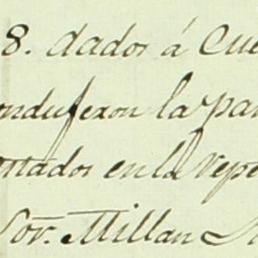 8. dados á Cue
ondujeron la par
ortados en la Repe
Sor. Millan